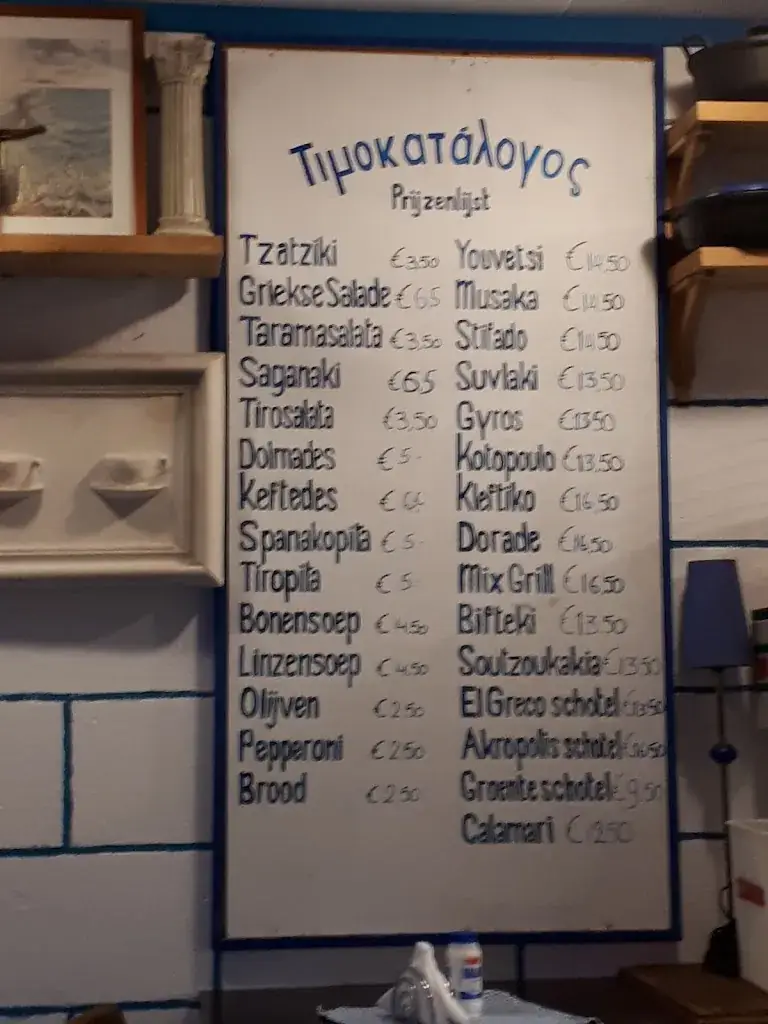 Τιμοκατάλογος
Prijzenlijst
Tzatziki €3,50
Griekse Salade €6,5
Taramasalata €3,50
Saganaki €6,5
Tirosalata €3,50
Dolmades €5-
Keftedes €
Spanakopita €5-
Tiropita €5-
Bonensoep €4,50
Linzensoep €4,50
Olijven €2,50
Pepperoni €2,50
Brood €2,50
Youvetsi €14,50
Musaka €14,50
Stifado €14,50
Suvlaki €13,50
Gyros €13,50
Kotopoulo €13,50
Kleftiko €16,50
Dorade €16,50
Mix Grill €16,50
Bifteki €13,50
Soutzoukakia €13,50
El Greco schotel €13,50
Akropolis schotel €16,50
Groente schotel €9,50
Calamari €12,50